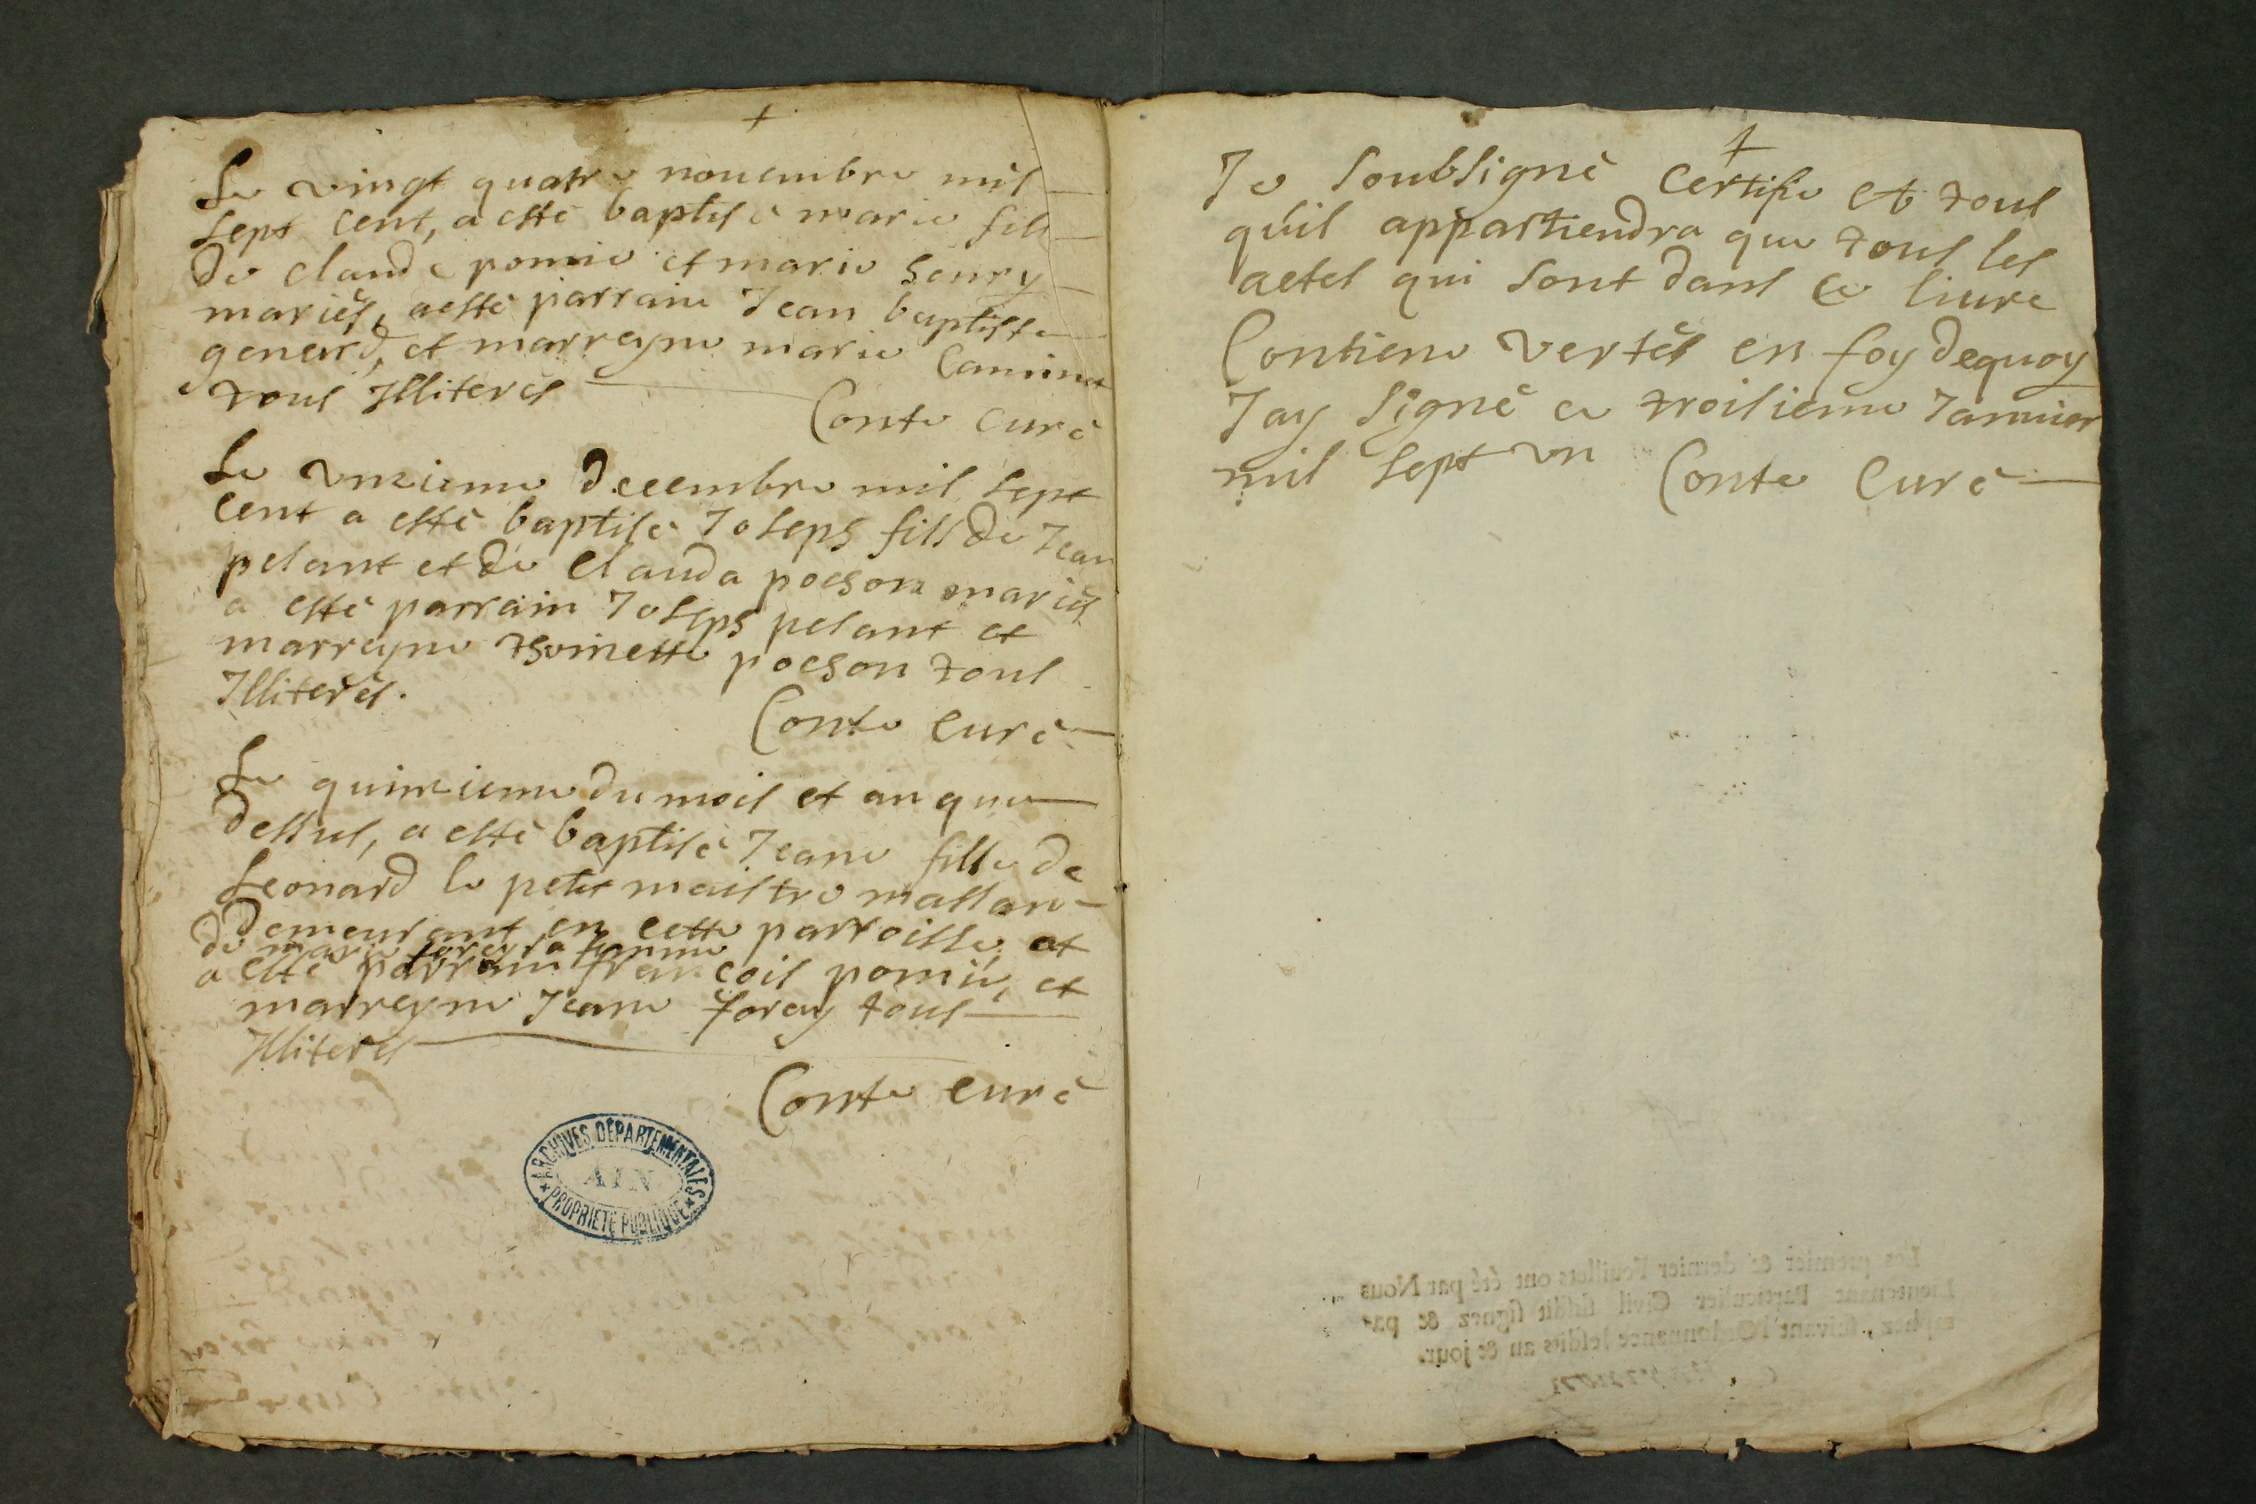 +
Le vingt quatre nouembre mil
sept cent, a esté baptisé marie fille
de claude pomie et marie henry
mariés, a esté parrain Jean baptiste
genard, et marreyne marie
tous Illiterés
Conte curé
Le vnzieme decembre mil sept
cent a esté baptisé Joseph fils de Jean
pelant et de clauda pochon mariés
a esté parrain Joseph pelant et
marreyne thoinette pochon tous
Illiterés.
Conte curé
Le quinzieme du mois et an que
dessus, a esté baptisé Jeane fille de
Leonard le petit maistre massan
demeurant en cette parroisse, et
de marie forey sa femme
a esté parrain francois pomie, et
marreyne Jeane forey tous
Illiterés
Conte curé
ARCHIVES DÉPARTEMENTALES
AIN
PROPRIÉTÉ PUBLIQUE
+
Je soubsigné certifie et tous
qu'il appartiendra que tous les
actes qui sont dans ce liure
Contiene vertés en foy dequoy
Jay signé ce troisieme Januier
mil sept vn Conte Curé
Les premier & dernier Feuillets ont été par Nous
Lieutenant Particulier Civil susdit signez & pa-
raphez, suivant l'Ordonnance lesdits an & jour.